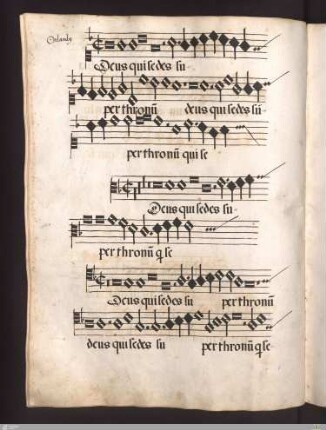 Orlandi
Deus qui sedes su
per thronū deus qui sedes su
per thronū qui se
Deus qui sedes su
per thronū q se
Deus qui sedes su per thronū
deus qui sedes su per thronū q se